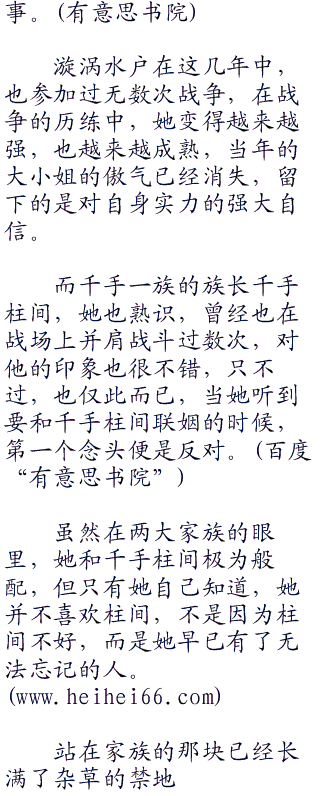 事。(有意思书院)
漩涡水户在这几年中，
也参加过无数次战争，在战
争的历练中，她变得越来越
强，也越来越成熟，当年的
大小姐的傲气已经消失，留
下的是对自身实力的强大自
信。
而千手一族的族长千手
柱间，她也熟识，曾经也在
战场上并肩战斗过数次，对
他的印象也很不错，只不
过，也仅此而已，当她听到
要和千手柱间联姻的时候，
第一个念头便是反对。(百度
“有意思书院”)
虽然在两大家族的眼
里，她和千手柱间极为般
配，但只有她自己知道，她
并不喜欢柱间，不是因为柱
间不好，而是她早已有了无
法忘记的人。
(www.heihei66.com)
站在家族的那块已经长
满了杂草的禁地